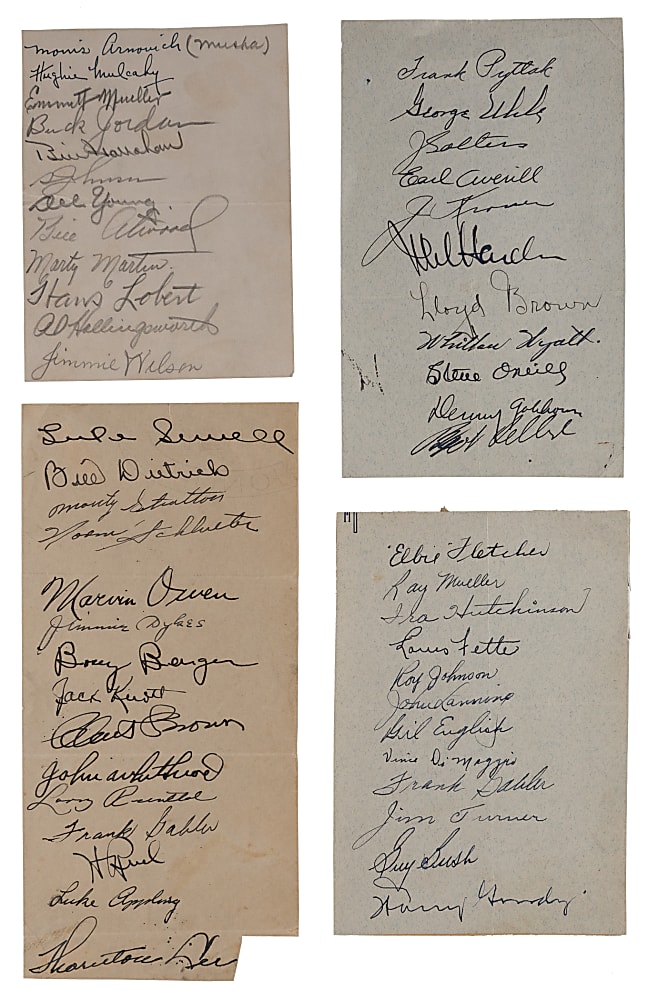 Morris Arnovich (Musha)
Hughie Mulcahy
Emmett Mueller
Buck Jordan
Bill Harrahan
S Johnson
Del Young
Bill Atwood
Marty Martin.
Hans Lobert
Al Hollingsworth
Jimmie Wilson
Frank Pytlak
George Uhle
J Solters
Earl Averill
J. Kroner
Mel Harder
Lloyd Brown
Whitlow Wyatt.
Steve O'Neill
Denny Galehouse
Luke Sewell
Bill Dietrich
Monty Stratton
Norm Schlueter
Marvin Owen
Jimmie Dykes
Bozey Berger
Jack Knott
Clint Brown
John Whitehead
Larry Rosenthal
Frank Gabler
H Ruel
Luke Appling
Thornton Lee
"Elbie" Fletcher
Ray Mueller
Ira Hutchinson
Louis Fette
Roy Johnson
John Lanning
Gil English
Vince Di Maggio
Frank Gabler
Jim Turner
Guy Bush
Harry